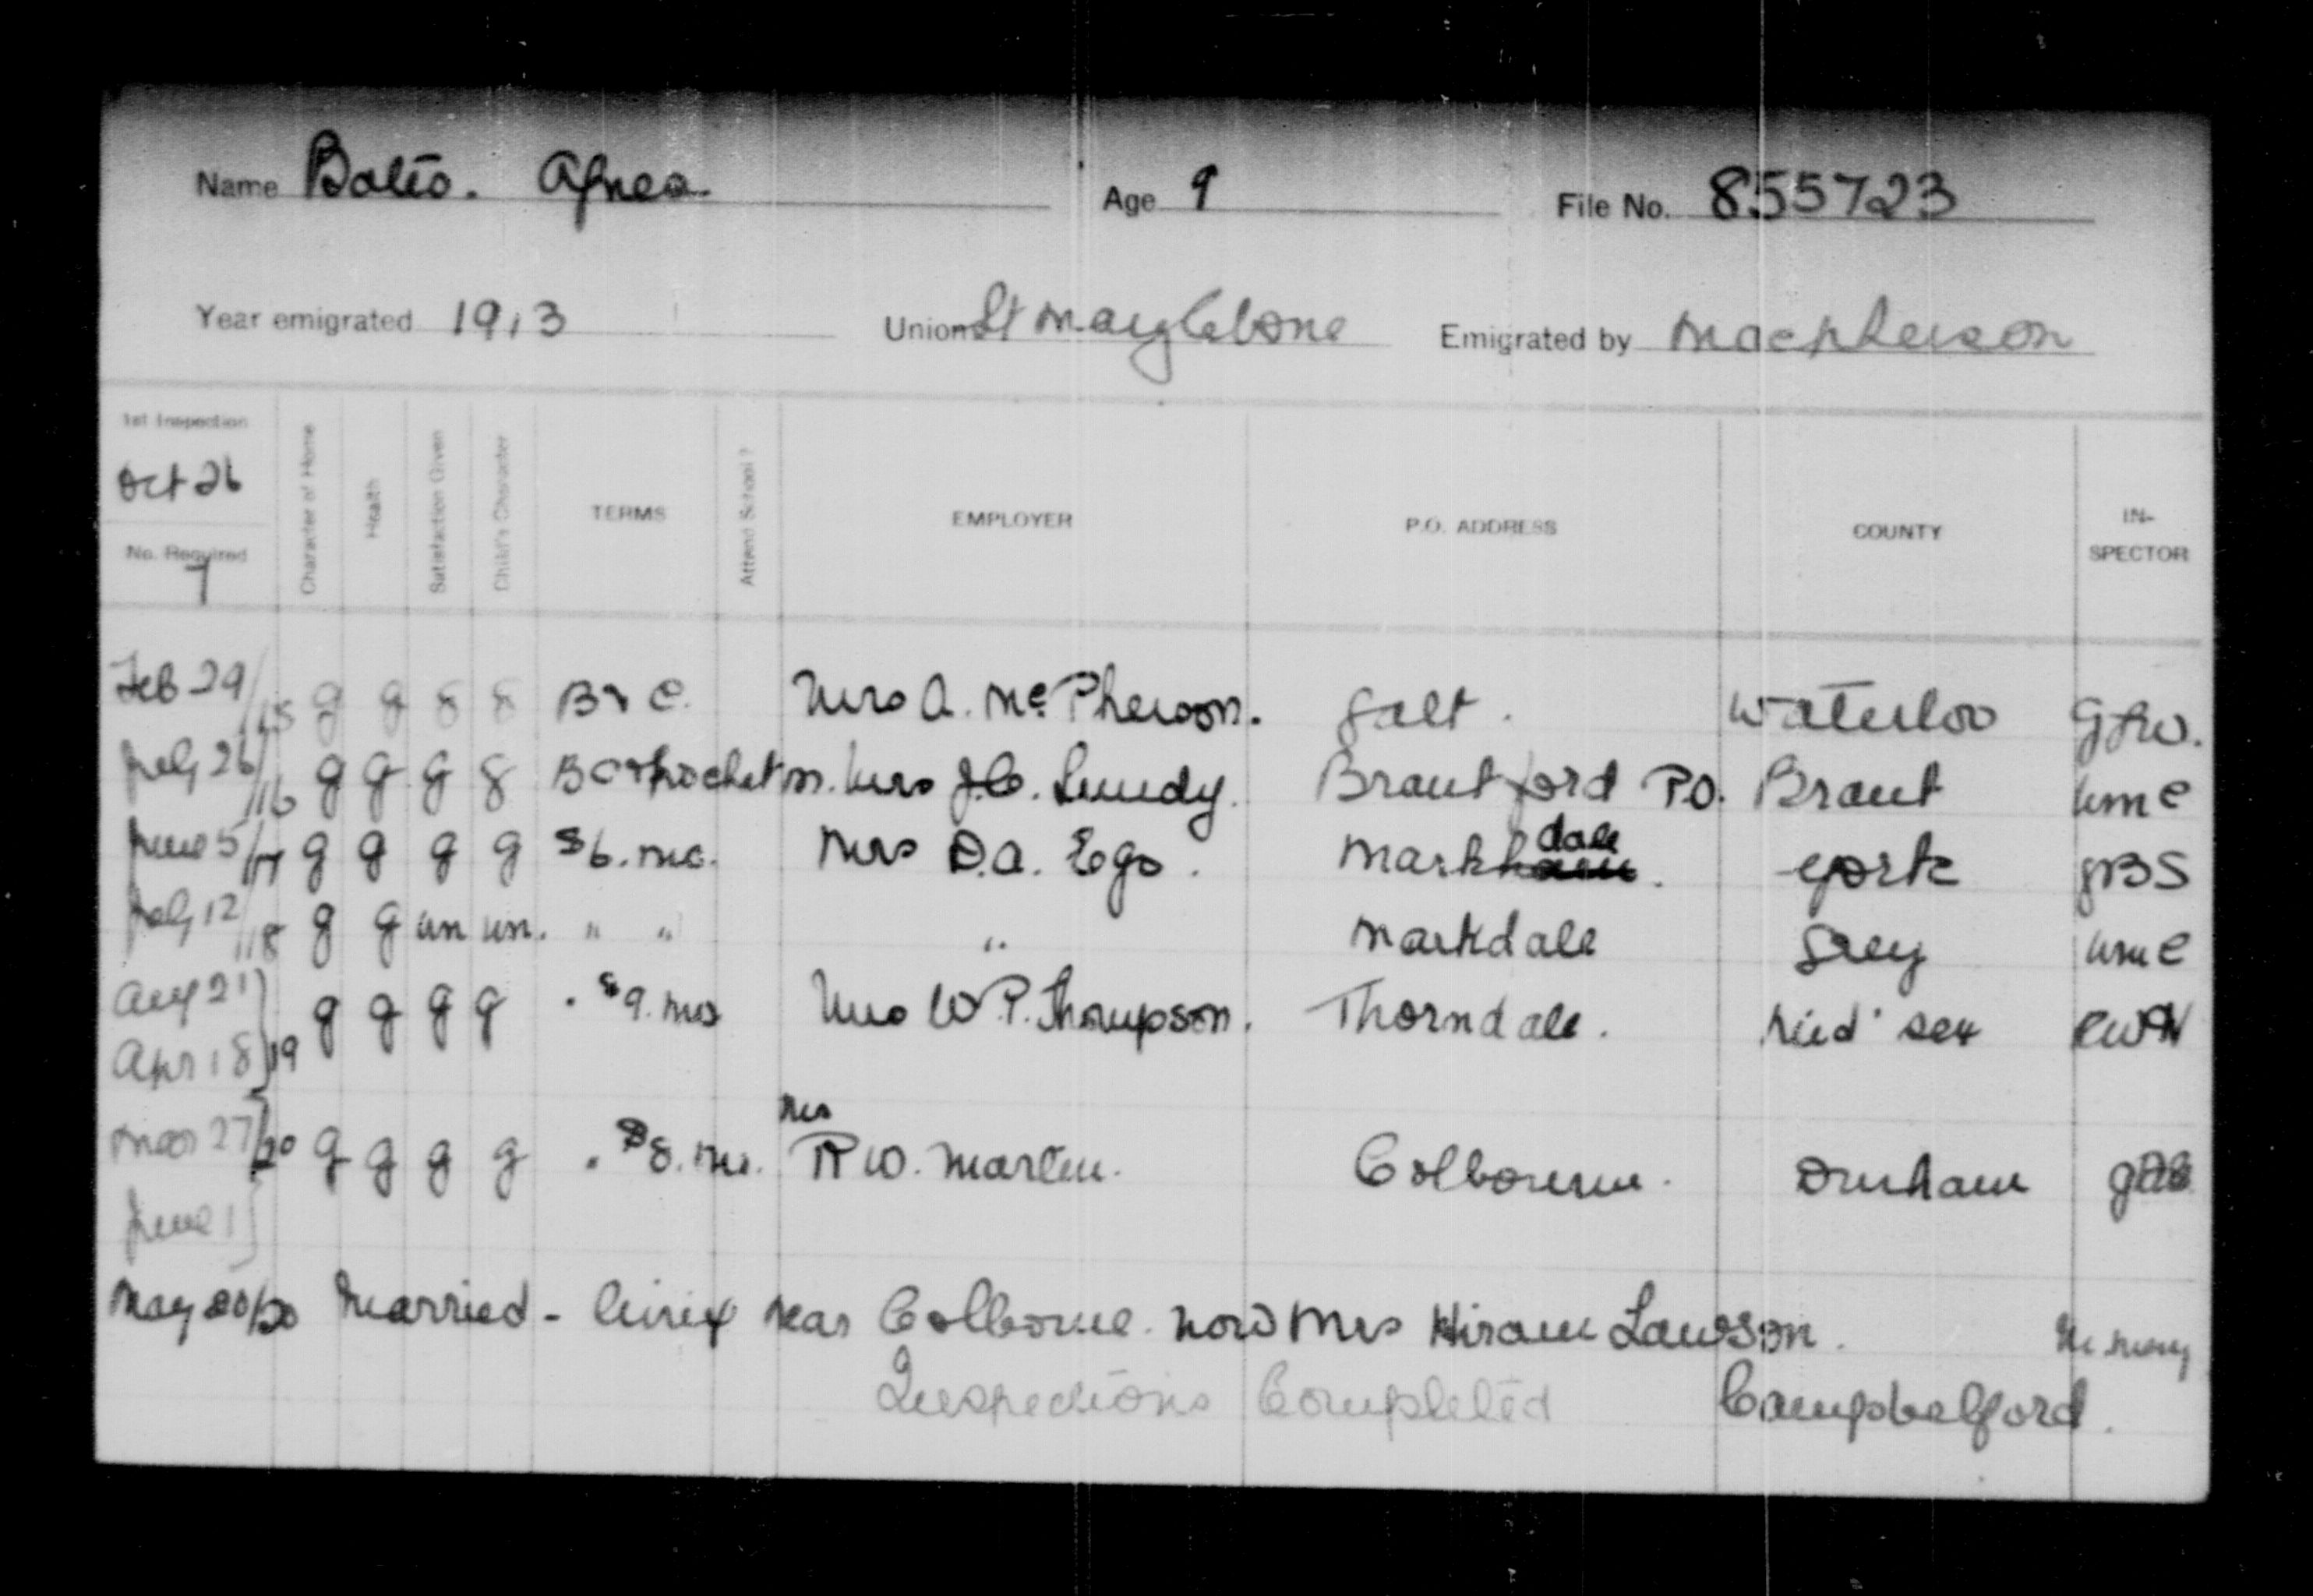 Name Bates. Agnes Age 9 File No. 855723
Year emigrated 1913 Union St Marylebone Emigrated by Macpherson
1st Inspection Oct 26 No. Required 7 Character of Home Health Satisfaction Given Child's Character TERMS Attend School? EMPLOYER P.O. ADDRESS COUNTY IN-SPECTOR
Feb 29/15 g g g g B & C. Mrs A. McPherson. Galt. Waterloo
July 26/16 g g g g B C & pocket m. Mrs J.C. Lundy. Brantford P.O. Brant
June 5/17 g g g g $6. mo. Mrs D.A. Ego. Markham dale York GBS
July 12/18 g g un un. " " " Markdale Grey
Aug 21 Apr 18/19 g g g g . $9. mo Mrs W.P. Thompson. Thorndale. Mid'sex
Mar 27/20 June 1 g g g g . $8. mo. Mrs R W. Martin. Colborne. Durham
May 20/20 Married - living near Colborne. now Mrs Hiram Lawson.
Inspections Completed Campbelford.